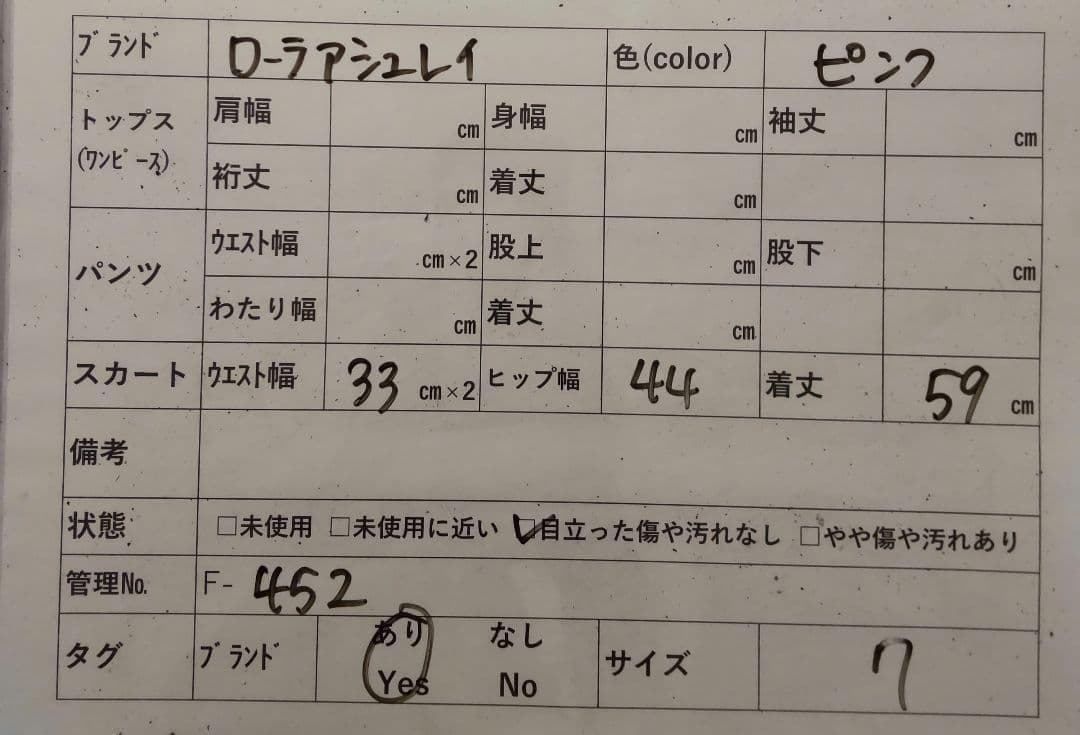 ブランド ローラアシュレイ 色(color) ピンク
トップス(ワンピース) 肩幅 cm 身幅 cm 袖丈 cm
裄丈 cm 着丈 cm
パンツ ウエスト幅 cm×2 股上 cm 股下 cm
わたり幅 cm 着丈 cm
スカート ウエスト幅 33 cm×2 ヒップ幅 44 着丈 59 cm
備考
状態 □未使用 □未使用に近い ☑目立った傷や汚れなし □やや傷や汚れあり
管理No. F-452
タグ ブランド あり Yes なし No サイズ 7